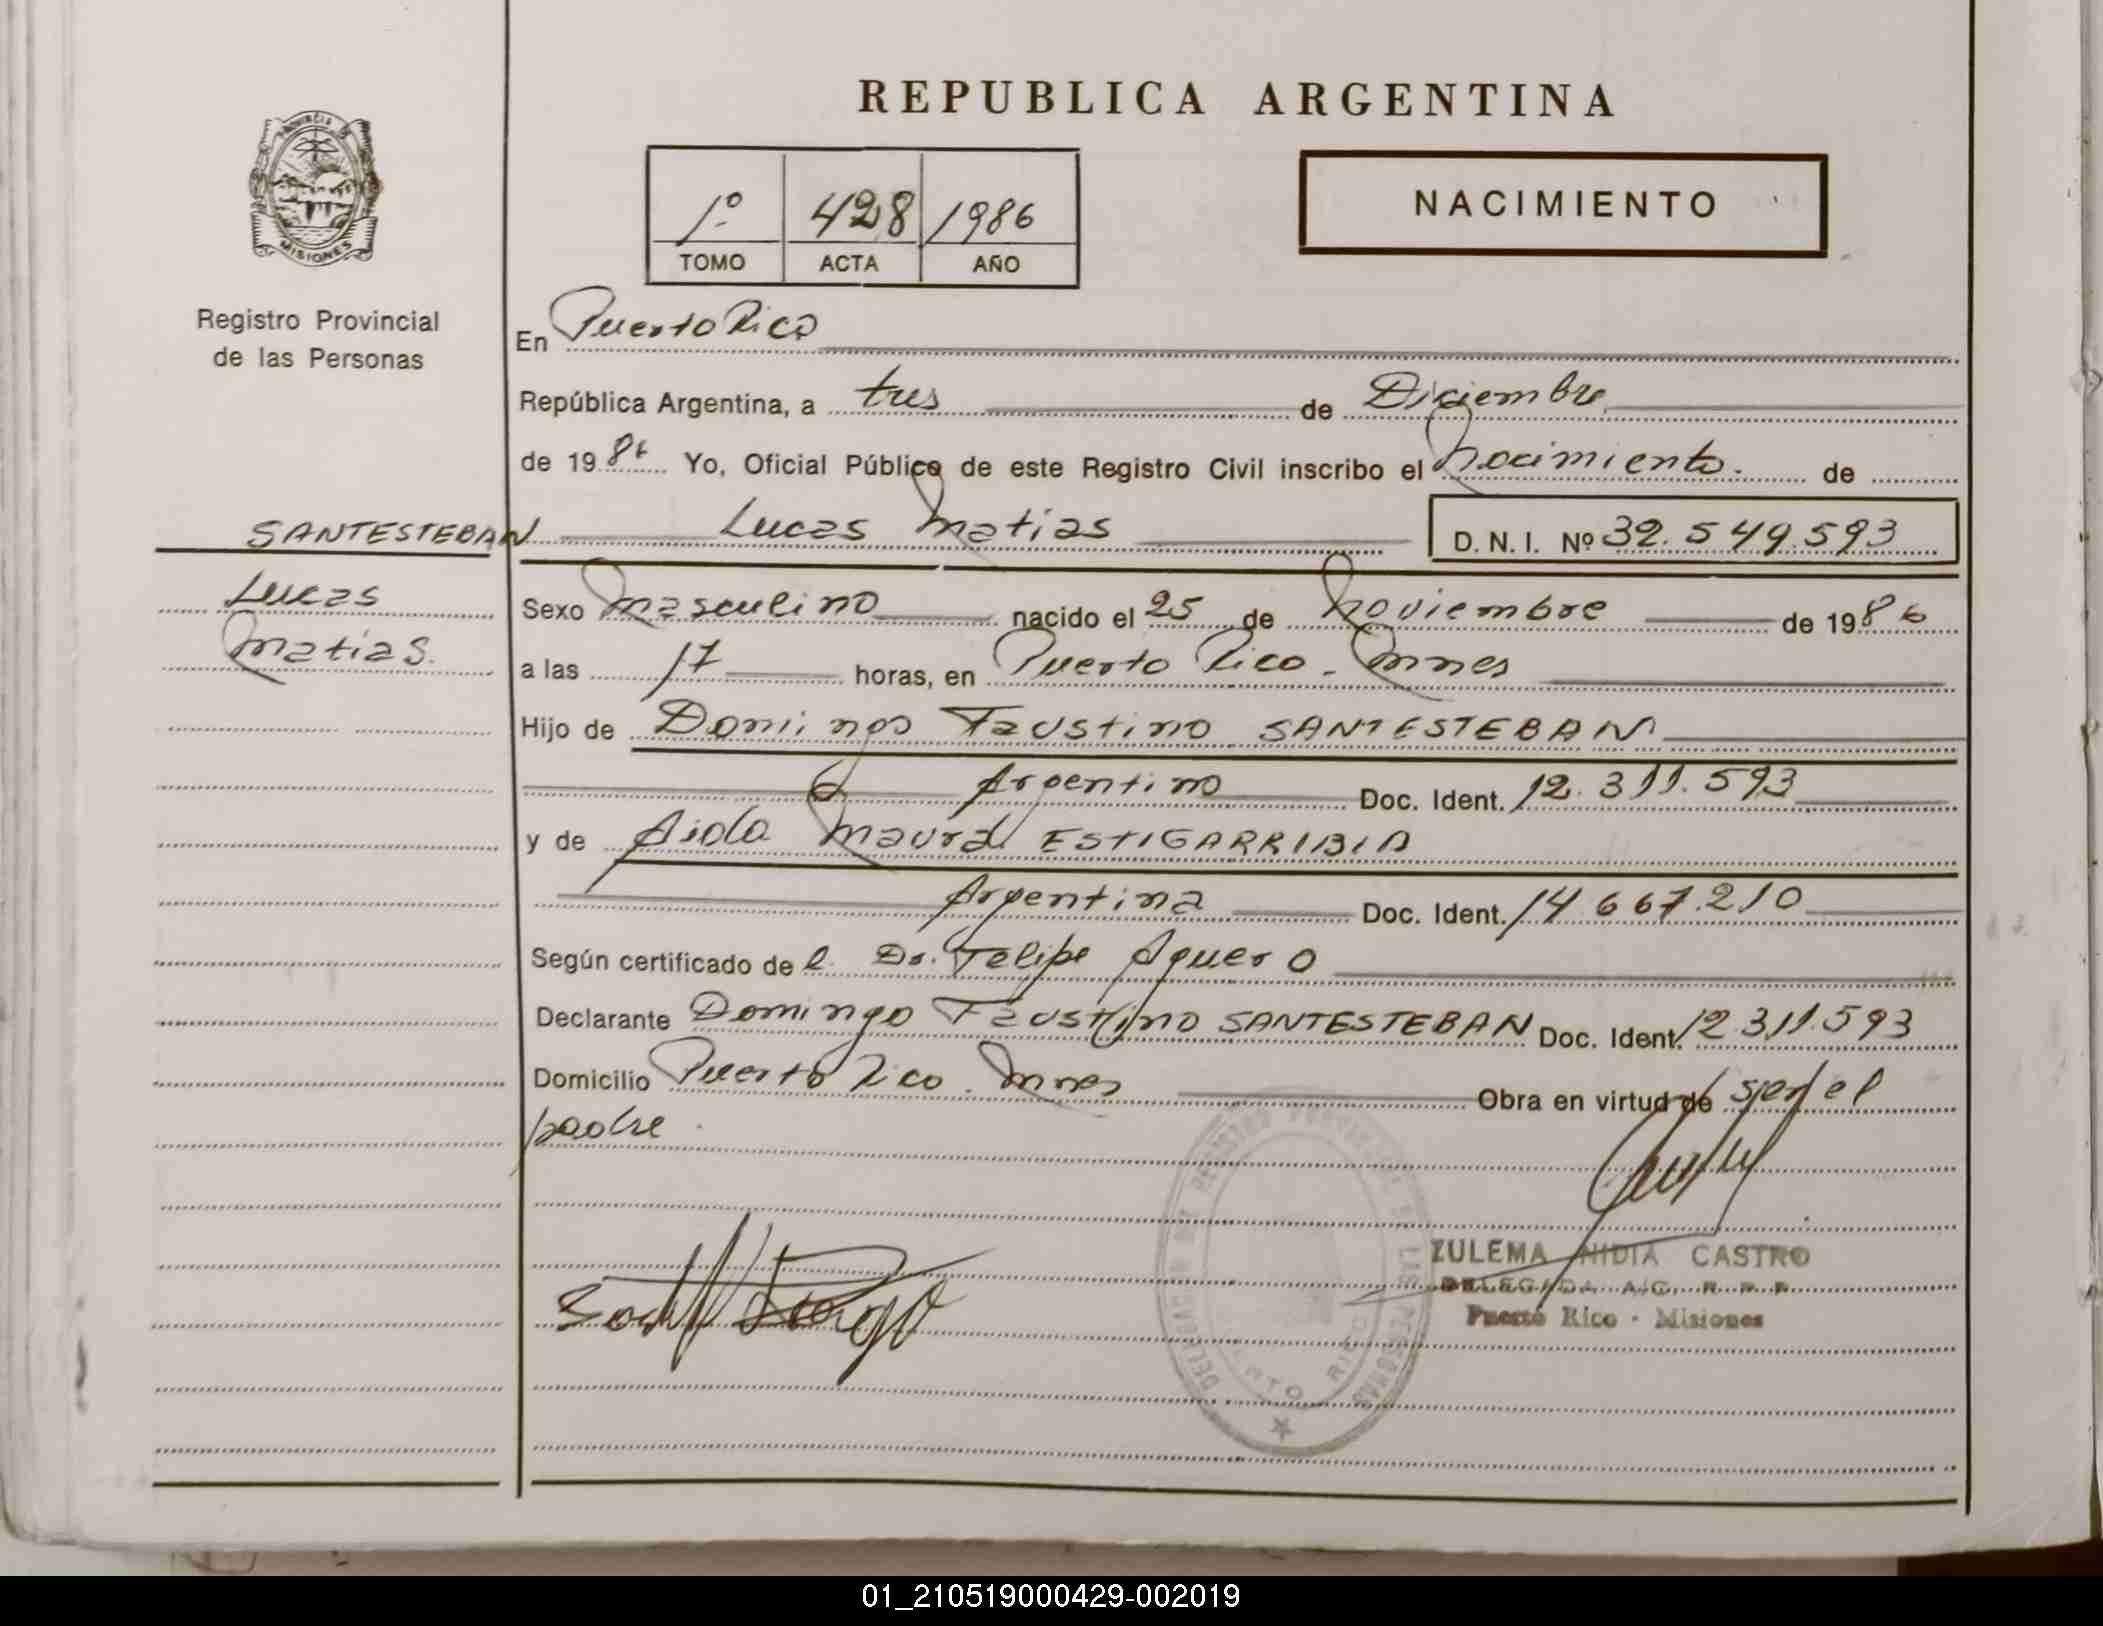 PROVINCIA DE
MISIONES
Registro Provincial
de las Personas
SANTESTEBAN
Lucas
Matias.
REPUBLICA ARGENTINA
1º 428 1986
TOMO ACTA AÑO
NACIMIENTO
En Puerto Rico
República Argentina, a tres de Diciembre
de 1986 Yo, Oficial Público de este Registro Civil inscribo el Nacimiento. de
Lucas Matias D. N. I. Nº 32.549.593
Sexo Masculino nacido el 25 de Noviembre de 1986
a las 17 horas, en Puerto Rico - Mnes
Hijo de Domingo Faustino SANTESTEBAN
Argentino Doc. Ident. 12.311.593
y de Aida Maura ESTIGARRIBIA
Argentina Doc. Ident. 14.667.210
Según certificado de l Dr. Felipe Aguero
Declarante Domingo Faustino SANTESTEBAN Doc. Ident. 12.311.593
Domicilio Puerto Rico. Mnes Obra en virtud de ser el
padre.
DELEGACION DEL REGISTRO PROVINCIAL DE LAS PERSONAS
PUERTO RICO
ZULEMA NIDIA CASTRO
DELEGADA A/C. R. P. P.
Puerto Rico - Misiones
01_210519000429-002019